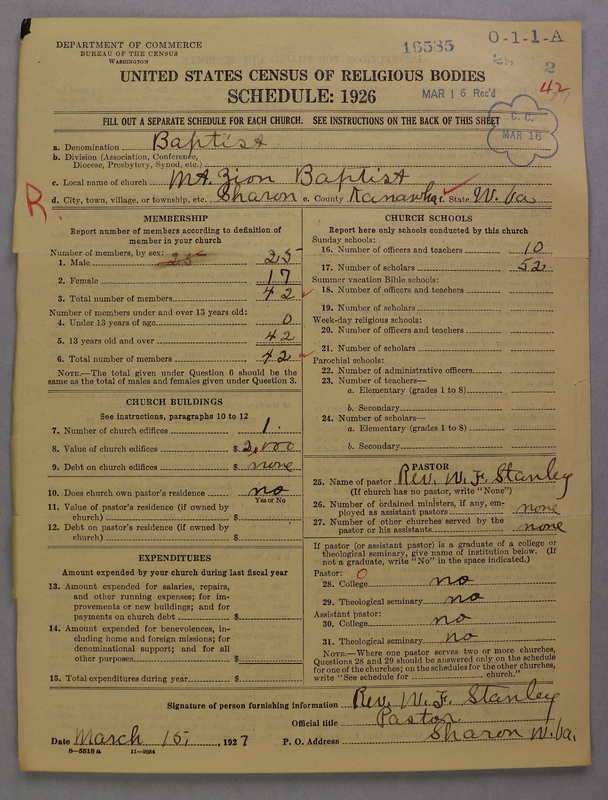 DEPARTMENT OF COMMERCE
BUREAU OF THE CENSUS
WASHINGTON
16585
O-1-1-A
2
MAR 16 Rec'd
42
C. C.
MAR 16
UNITED STATES CENSUS OF RELIGIOUS BODIES
SCHEDULE: 1926
FILL OUT A SEPARATE SCHEDULE FOR EACH CHURCH. SEE INSTRUCTIONS ON THE BACK OF THIS SHEET
a. Denomination Baptist
b. Division (Association, Conference,
Diocese, Presbytery, Synod, etc.)
c. Local name of church Mt. Zion Baptist
d. City, town, village, or township, etc. Sharon e. County Kanawha f. State W. Va.
R.
MEMBERSHIP
Report number of members according to definition of
member in your church
Number of members, by sex:
1. Male 25 25
2. Female 17
3. Total number of members 42
Number of members under and over 13 years old:
4. Under 13 years of age 0
5. 13 years old and over 42
6. Total number of members 42
NOTE.—The total given under Question 6 should be the
same as the total of males and females given under Question 3.
CHURCH BUILDINGS
See instructions, paragraphs 10 to 12
7. Number of church edifices 1.
8. Value of church edifices $ 2,000
9. Debt on church edifices $ none
10. Does church own pastor's residence no
Yes or No
11. Value of pastor's residence (if owned by
church) $
12. Debt on pastor's residence (if owned by
church) $
EXPENDITURES
Amount expended by your church during last fiscal year
13. Amount expended for salaries, repairs,
and other running expenses; for im-
provements or new buildings; and for
payments on church debt $
14. Amount expended for benevolences, in-
cluding home and foreign missions; for
denominational support; and for all
other purposes $
15. Total expenditures during year $
CHURCH SCHOOLS
Report here only schools conducted by this church
Sunday schools:
16. Number of officers and teachers 10
17. Number of scholars 52
Summer vacation Bible schools:
18. Number of officers and teachers
19. Number of scholars
Week-day religious schools:
20. Number of officers and teachers
21. Number of scholars
Parochial schools:
22. Number of administrative officers
23. Number of teachers—
a. Elementary (grades 1 to 8)
b. Secondary
24. Number of scholars—
a. Elementary (grades 1 to 8)
b. Secondary
PASTOR
25. Name of pastor Rev. W. F. Stanley
(If church has no pastor, write "None")
26. Number of ordained ministers, if any, em-
ployed as assistant pastors none
27. Number of other churches served by the
pastor or his assistants none
If pastor (or assistant pastor) is a graduate of a college or
theological seminary, give name of institution below. (If
not a graduate, write "No" in the space indicated.)
Pastor: O
28. College no
29. Theological seminary no
Assistant pastor:
30. College no
31. Theological seminary no
NOTE.—Where one pastor serves two or more churches,
Questions 28 and 29 should be answered only on the schedule
for one of the churches; on the schedules for the other churches,
write "See schedule for church."
Signature of person furnishing information Rev. W. F. Stanley
Official title Pastor
Date March 15, 1927 P. O. Address Sharon W. Va.
8-5518 a 11-9034